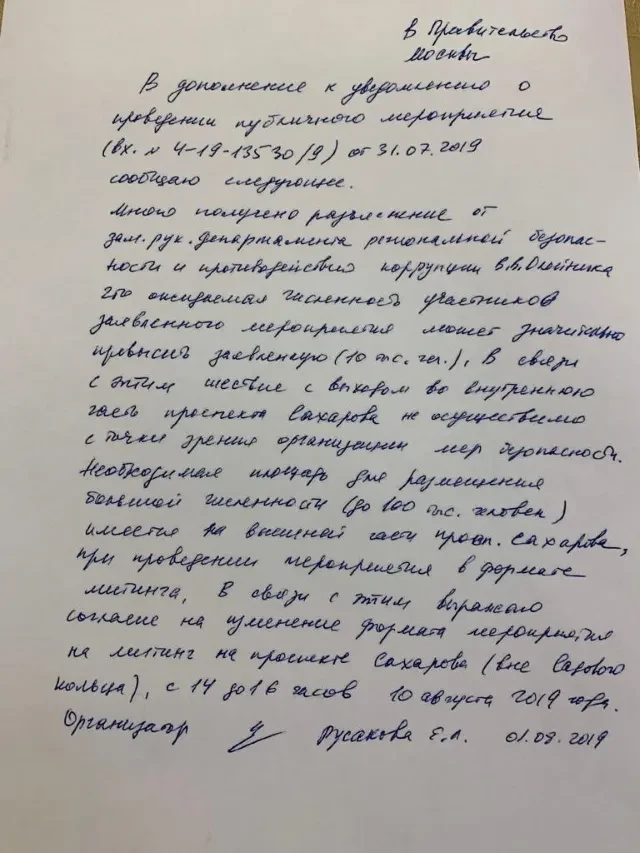 в Правительство
Москвы
В дополнение к уведомлению о
проведении публичного мероприятия
(вх. № 4-19-13530/9) от 31.07.2019
сообщаю следующее.
Мною получено разъяснение от
зам. рук. департамента региональной безопас-
ности и противодействию коррупции В.В. Олейника
что ожидаемая численность участников
заявленного мероприятия может значительно
превысить заявленную (10 тыс. чел.). В связи
с этим шествие с выходом во внутреннюю
часть проспекта Сахарова не осуществимо
с точки зрения организации мер безопасности.
Необходимая площадь для размещения
большой численности (до 100 тыс. человек)
имеется на внешней части просп. Сахарова,
при проведении мероприятия в формате
митинга. В связи с этим выражаю
согласие на изменение формата мероприятия
на митинг на проспекте Сахарова (вне Садового
кольца), с 14 до 16 часов 10 августа 2019 года.
Организатор Русакова Е.Л. 01.08.2019